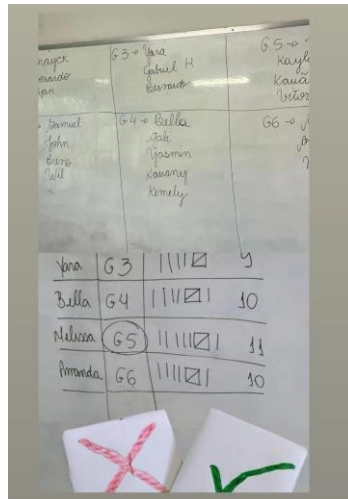 G3 → Yara
Gabriel H
Bernardo
G5 →
Kayl
Kauã
Samuel
John
Breno
Wil
G4 → Bella
Gabi
Yasmin
Kauany
Kemely
G6 →
Yara G3 9
Bella G4 10
Melissa G5 11
Amanda G6 10